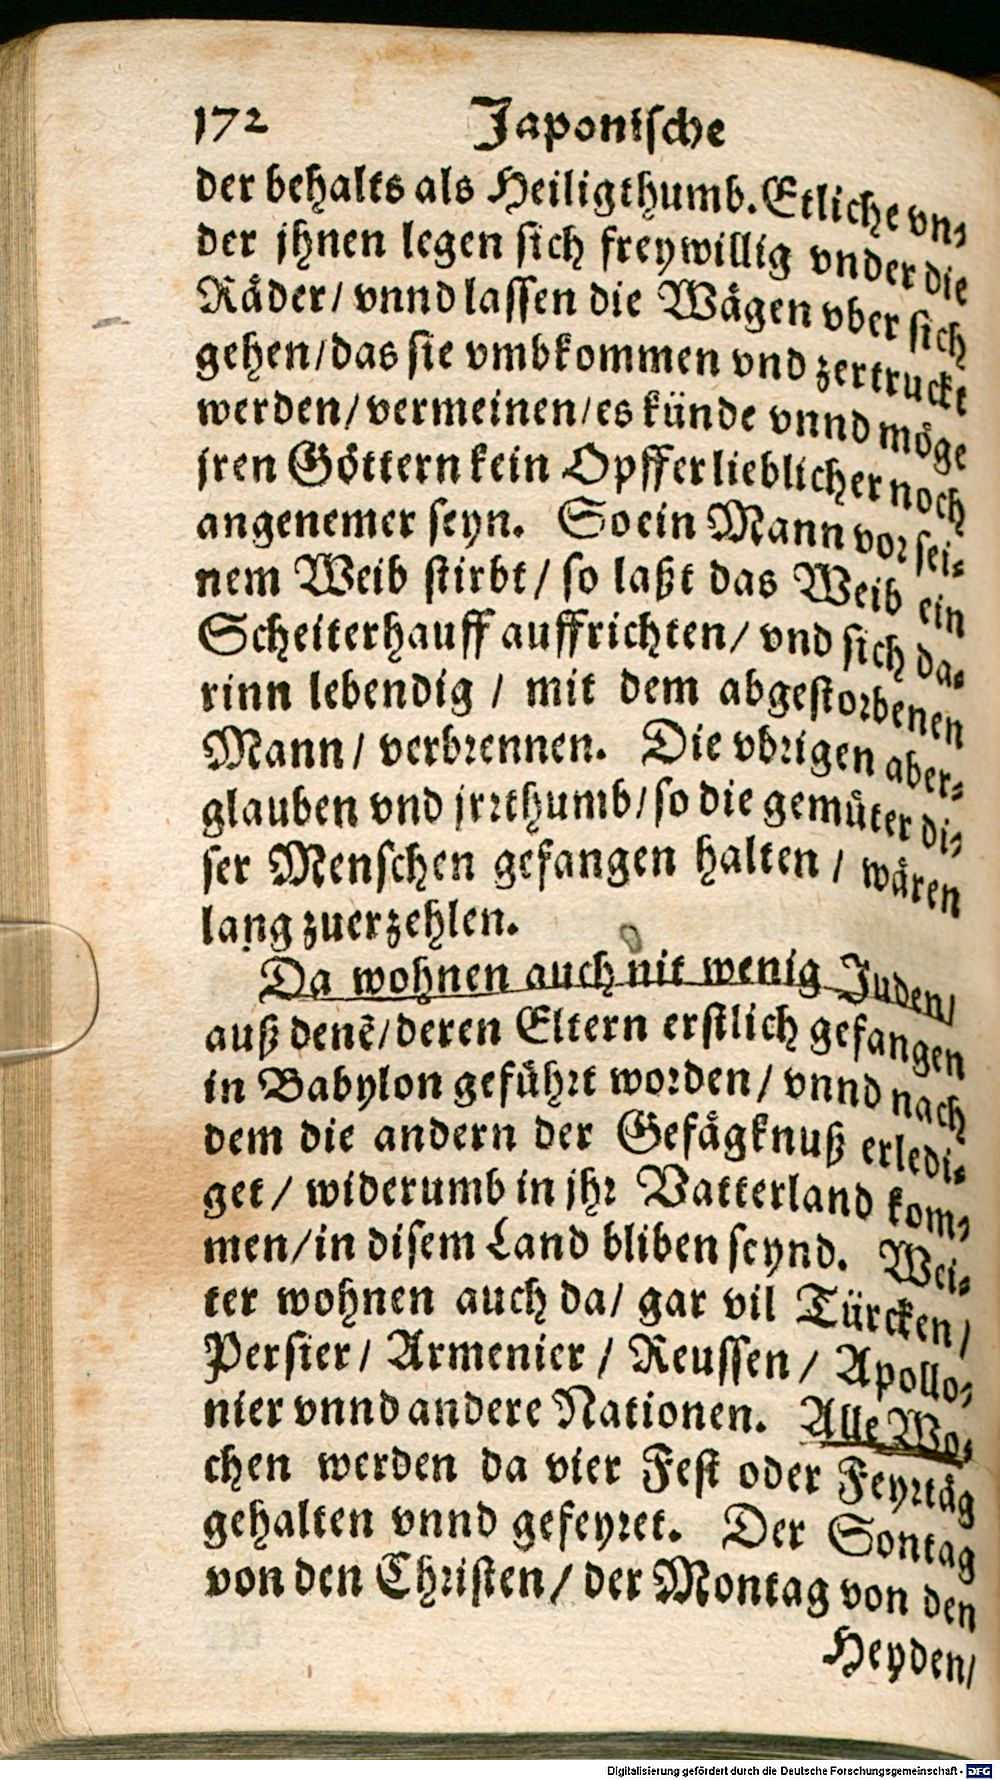 172 Japonische
der behalts als Heiligthumb. Etliche vn-
der jhnen legen sich freywillig vnder die
Räder/ vnnd lassen die Wägen vber sich
gehen/das sie vmbkommen vnd zertruckt
werden/ vermeinen/es künde vnnd möge
jren Göttern kein Opffer lieblicher noch
angenemer seyn. So ein Mann vor sei-
nem Weib stirbt/ so laßt das Weib ein
Scheiterhauff auffrichten/ vnd sich da-
rinn lebendig / mit dem abgestorbenen
Mann/ verbrennen. Die vbrigen aber-
glauben vnd jrrthumb/so die gemüter di-
ser Menschen gefangen halten / wären
lang zuerzehlen.
Da wohnen auch nit wenig Juden/
auß denẽ/deren Eltern erstlich gefangen
in Babylon geführt worden/ vnnd nach
dem die andern der Gefägknuß erledi-
get/ widerumb in jhr Vatterland kom-
men/in disem Land bliben seynd. Wei-
ter wohnen auch da/ gar vil Türcken/
Persier/ Armenier / Reussen / Apollo-
nier vnnd andere Nationen. Alle Wo-
chen werden da vier Fest oder Feyrtäg
gehalten vnnd gefeyret. Der Sontag
von den Christen/ der Montag von den
Heyden/
Digitalisierung gefördert durch die Deutsche Forschungsgemeinschaft - DFG